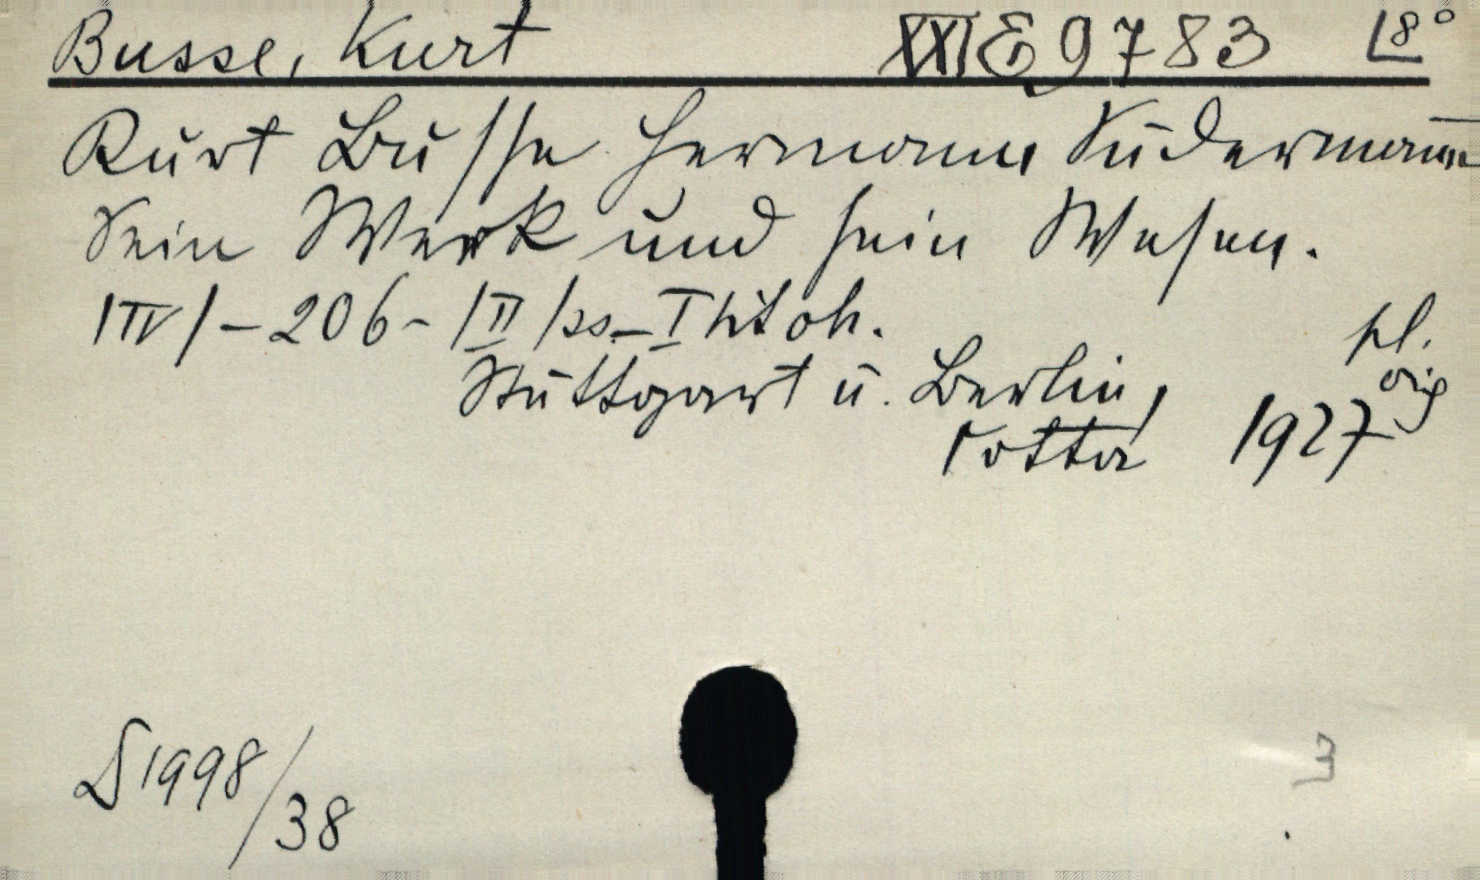 Busse, Kurt XXI E 9783 8°
Kurt Busse Hermann Sudermann
Sein Werk und sein Wesen.
|IV|-206-|II|ss-I
pl.
Stuttgart u. Berlin,
orig
Cotta 1927
1998/38